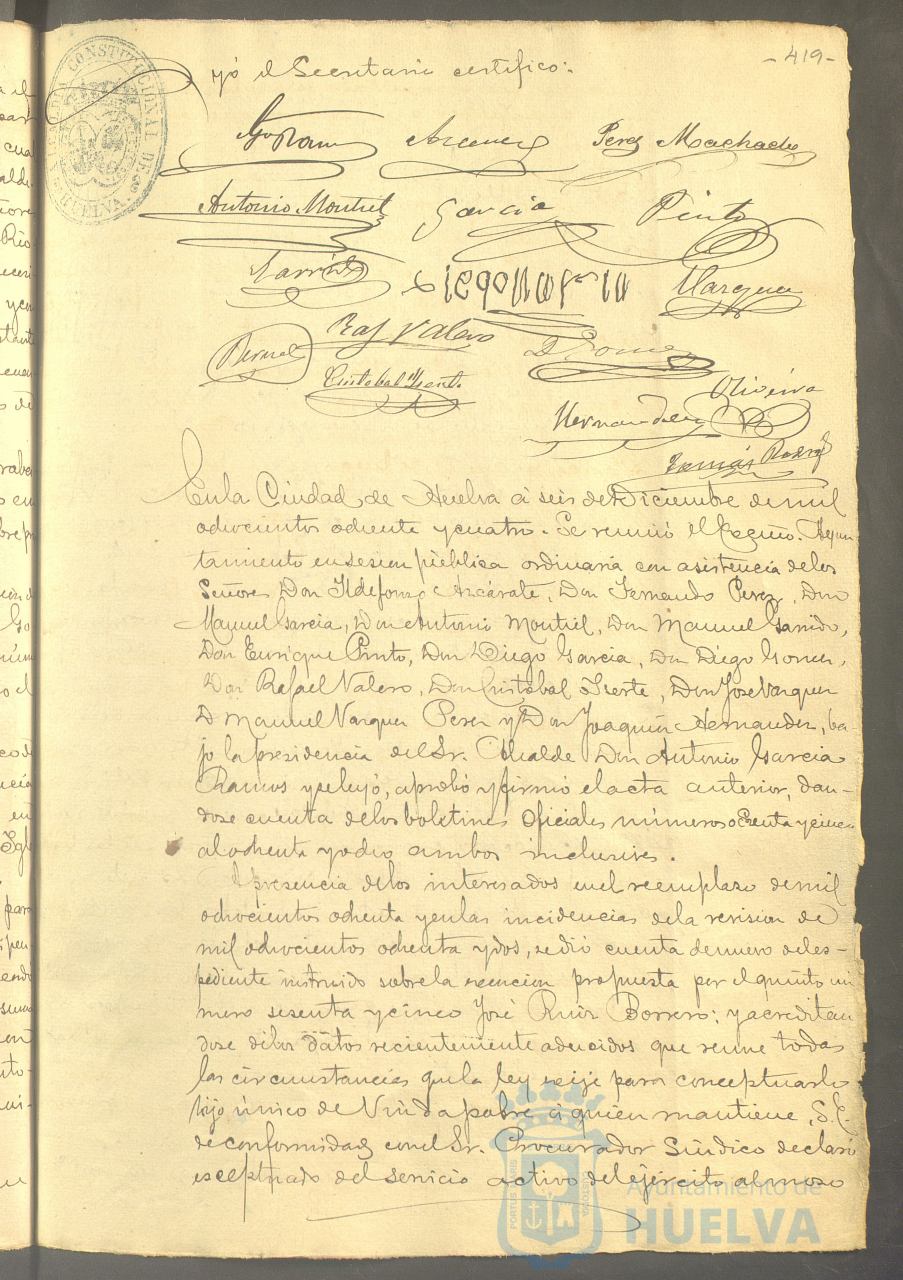 -419-
ALCALDIA CONSTITUCIONAL DE HUELVA
yó el Secretario certifico:
Gª Ramos Azcarate Perez Machado
Antonio Montiel Garcia Pinto
Garrido Vazquez
Raf Valero
Bernal D Gomez
Cristobal Iserte
Oliveira
Hernandez
Tomás Rodrg
En la Ciudad de Huelva á seis de Diciembre de mil
ochocientos ochenta y cuatro. Se reunió el Excmo. Ayun
tamiento en sesion pública ordinaria con asistencia de los
Señores Don Ildefonso Azcárate, Don Fernando Perez, Don
Manuel Garcia, Don Antonio Montiel, Don Manuel Garrido,
Don Enrique Pinto, Don Diego Garcia, Don Diego Gomez,
Don Rafael Valero, Don Cristobal Iserte, Don Jose Vazquez
D Manuel Vazquez Perez y Don Joaquin Hernandez, ba
jo la presidencia del Sr. Alcalde Don Antonio Garcia
Ramos y se leyó, aprobó y firmó el acta anterior, dan-
dose cuenta de los boletines Oficiales números ochenta y cinco
al ochenta y ocho ambos inclusives.
A presencia de los interesados en el reemplazo de mil
ochocientos ochenta y en las incidencias de la revision de
mil ochocientos ochenta y dos, se dió cuenta de nuevo del es-
pediente instruido sobre la esencion propuesta por el quinto nú
mero sesenta y cinco José Ruiz Borrero: y acreditan
dose de los datos recientemente aducidos que reune todas
las circunstancias que la ley exije para conceptuarle
hijo único de Viuda pobre á quien mantiene, S. E.
de conformidad con el Sr. Procurador Síndico declaró
esceptuado del servicio activo del ejército al mozo
PORTUS MARIS ET TERRAE CUSTODIA
Ayuntamiento de
HUELVA